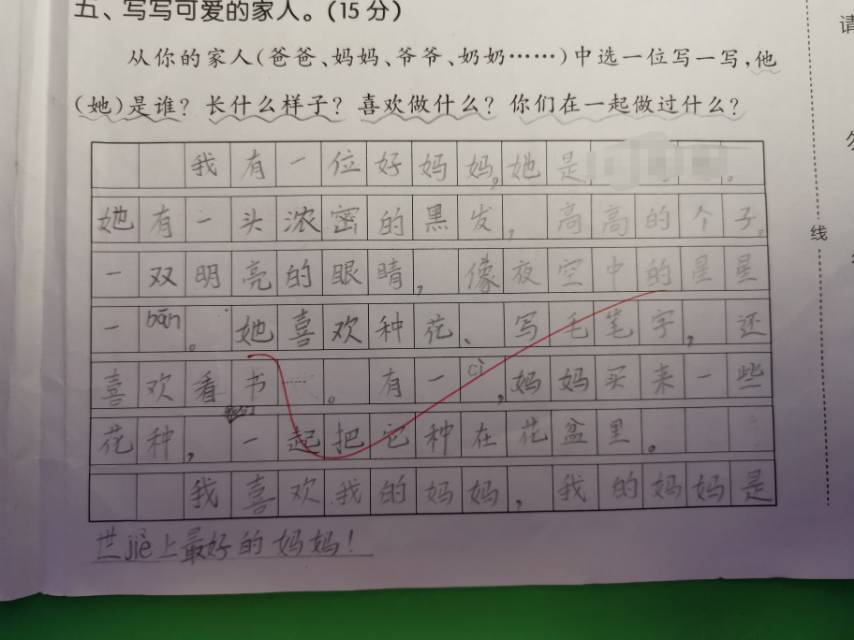 五、写写可爱的家人。(15分)
从你的家人(爸爸、妈妈、爷爷、奶奶……)中选一位写一写,他
(她)是谁?长什么样子?喜欢做什么?你们在一起做过什么?
我有一位好妈妈。她是 。
她有一头浓密的黑发,高高的个子。
一双明亮的眼睛,像夜空中的星星
一bān。她喜欢种花、写毛笔字,还
喜欢看书……。有一cì,妈妈买来一些
花种,一起把它种在花盆里。
我喜欢我的妈妈,我的妈妈是
世jiè上最好的妈妈!
线
请